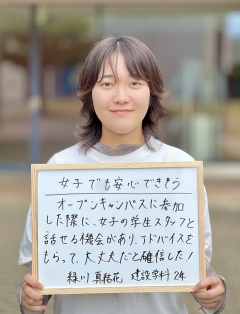 女子でも安心できそう
オープンキャンパスに参加
した際に、女子の学生スタッフと
話せる機会があり、アドバイスを
もらって、大丈夫だと確信した!
緑川 真祐花 建設学科 2年